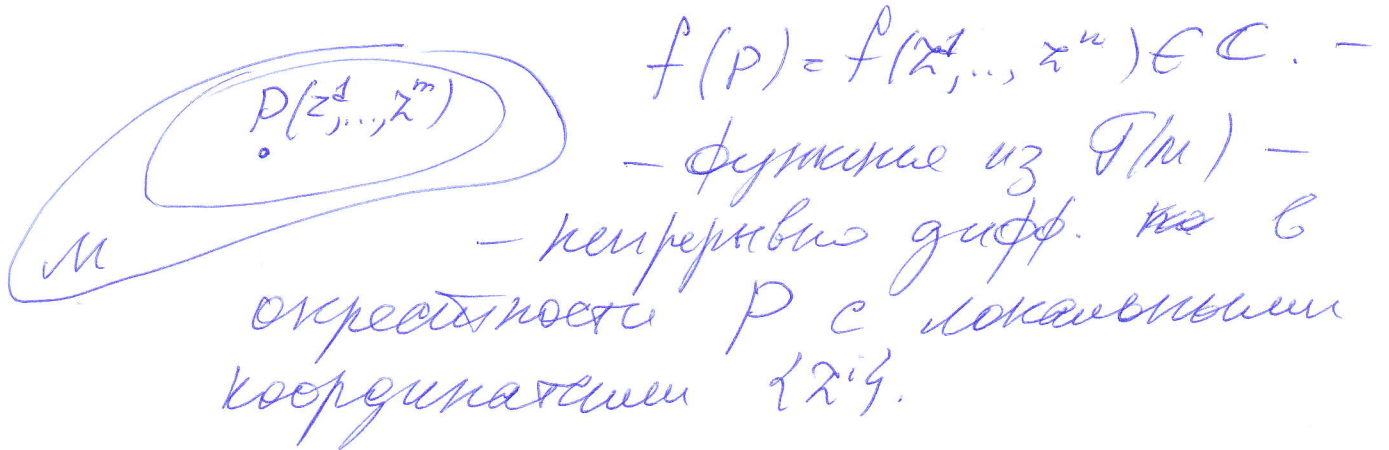 f(p) = f(z¹,..,zⁿ) ∈ ℂ. –
P(z¹,...,zᵐ)
– функция из F(M) –
– непрерывно дифф. в
M
окрестности P с локальными
координатами {zⁱ}.